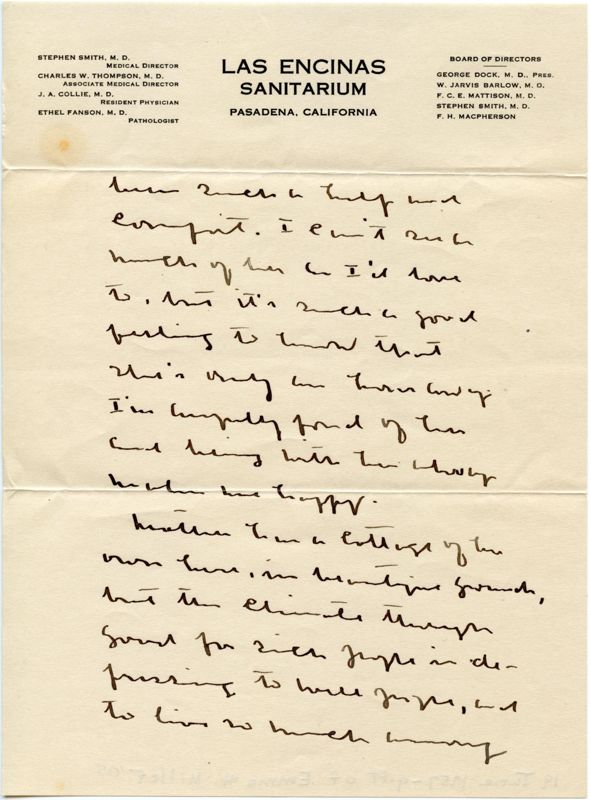 STEPHEN SMITH, M. D.
MEDICAL DIRECTOR
CHARLES W. THOMPSON, M. D.
ASSOCIATE MEDICAL DIRECTOR
J. A. COLLIE, M. D.
RESIDENT PHYSICIAN
ETHEL FANSON, M. D.
PATHOLOGIST
LAS ENCINAS
SANITARIUM
PASADENA, CALIFORNIA
BOARD OF DIRECTORS
GEORGE DOCK, M. D., PRES.
W. JARVIS BARLOW, M. D.
F. C. E. MATTISON, M. D.
STEPHEN SMITH, M. D.
F. H. MACPHERSON
been such a help and
comfort. I can't see
much of her as I'd love
to, but it's such a good
feeling to know that
she's only an hour away
I'm awfully fond of her
and being with her always
makes me happy.
Mother has a cottage of her
own here, in beautiful grounds,
but the climate though
good for sick people is de-
pressing to well people, and
to live so much among